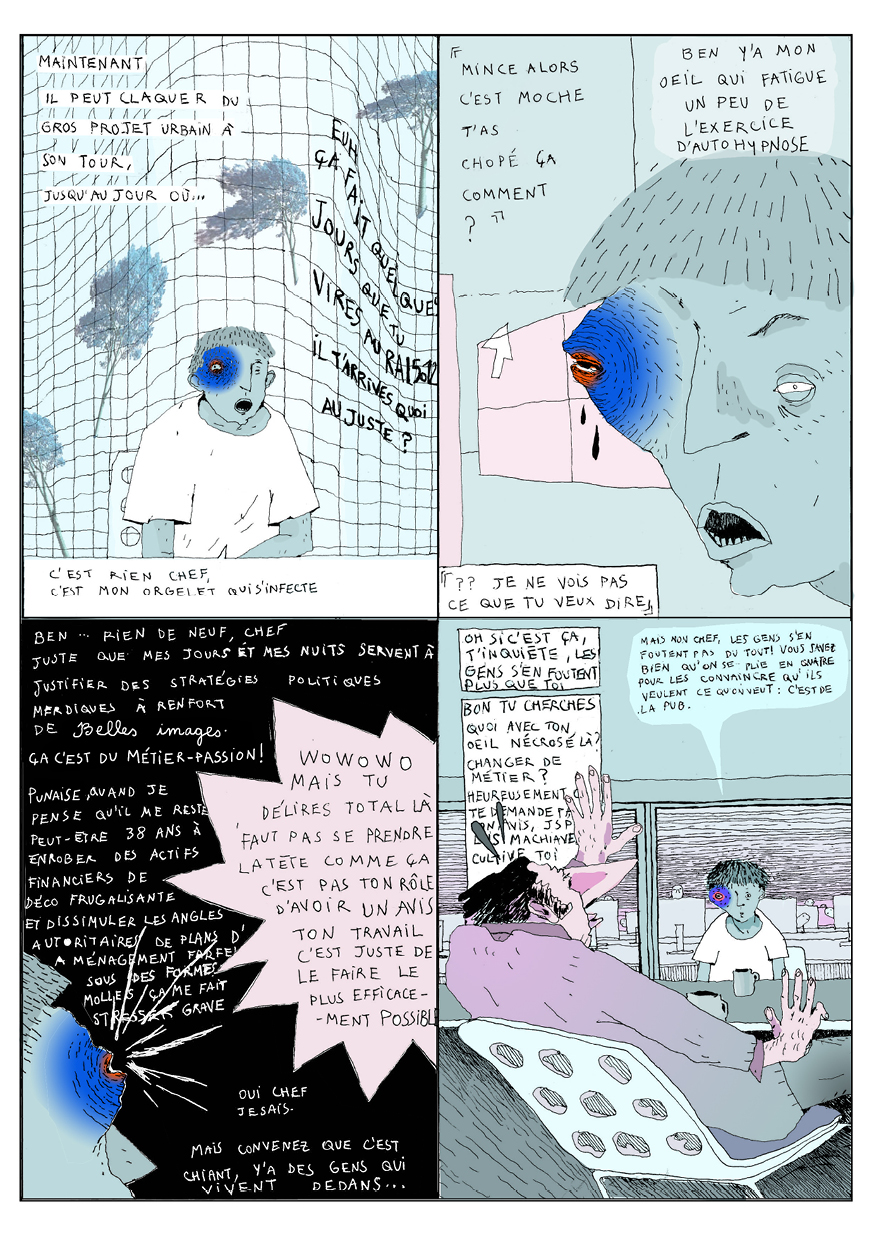 MAINTENANT,
IL PEUT CLAQUER DU
GROS PROJET URBAIN À
SON TOUR,
JUSQU'AU JOUR OÙ...
EUH
ÇA FAIT QUELQUES
JOURS QUE TU
VIRES AU RAL5012
IL T'ARRIVES QUOI
AU JUSTE ?
C'EST RIEN CHEF,
C'EST MON ORGELET QUI S'INFECTE
MINCE ALORS
C'EST MOCHE
T'AS
CHOPÉ ÇA
COMMENT
?
BEN Y'A MON
OEIL QUI FATIGUE
UN PEU DE
L'EXERCICE
D'AUTOHYPNOSE
?? JE NE VOIS PAS
CE QUE TU VEUX DIRE
BEN ... RIEN DE NEUF, CHEF
JUSTE QUE MES JOURS ET MES NUITS SERVENT À
JUSTIFIER DES STRATÉGIES POLITIQUES
MERDIQUES À RENFORT
DE Belles images.
ÇA C'EST DU MÉTIER-PASSION!
PUNAISE, QUAND JE
PENSE QU'IL ME RESTE
PEUT-ÊTRE 38 ANS À
ENROBER DES ACTIFS
FINANCIERS DE
DÉCO FRUGALISANTE
ET DISSIMULER LES ANGLES
AUTORITAIRES DE PLANS D'
AMÉNAGEMENT
SOUS DES FORMES
MOLLES, ÇA ME FAIT
STRESSER GRAVE
WOWOWO
MAIS TU
DÉLIRES TOTAL LÀ
FAUT PAS SE PRENDRE
LA TÊTE COMME ÇA
C'EST PAS TON RÔLE
D'AVOIR UN AVIS
TON TRAVAIL
C'EST JUSTE DE
LE FAIRE LE
PLUS EFFICACE-
-MENT POSSIBLE
OUI CHEF
JE SAIS.
MAIS CONVENEZ QUE C'EST
CHIANT, Y'A DES GENS QUI
VIVENT DEDANS...
OH SI C'EST ÇA,
T'INQUIÈTE, LES
GENS S'EN FOUTENT
PLUS QUE TOI
MAIS NON CHEF, LES GENS S'EN
FOUTENT PAS DU TOUT! VOUS SAVEZ
BIEN QU'ON SE PLIE EN QUATRE
POUR LES CONVAINCRE QU'ILS
VEULENT CE QU'ON VEUT : C'EST DE
LA PUB.
BON TU CHERCHES
QUOI AVEC TON
OEIL NÉCROSÉ LÀ?
CHANGER DE
MÉTIER?
HEUREUSEMENT
TE DEMANDE
AVIS, JSP
MACHIAVE
CULTIVE TOI